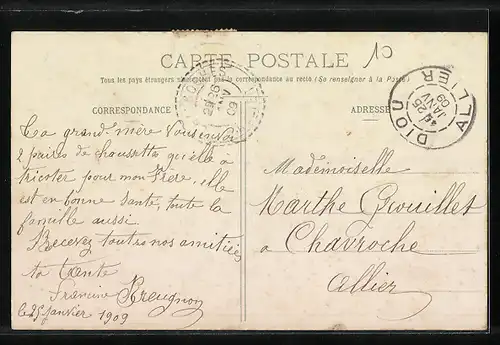 CARTE POSTALE
10
Tous les pays étrangers n'acceptent pas la correspondance au recto (Se renseigner à la Poste)
CORRESPONDANCE
ADRESSE
26
09
DIOU
ALLIER
25
JANV
09
Ta grand-mère vous envoie
2 paires de chaussettes qu'elle a
tricoter pour mon Frère, elle
est en bonne santé, toute la
famille aussi
Recevez toutes nos amitiés
ta tante
Francine Breugnon
le 25 janvier 1909
Mademoiselle
Marthe Grouillet
à Chavroche
Allier